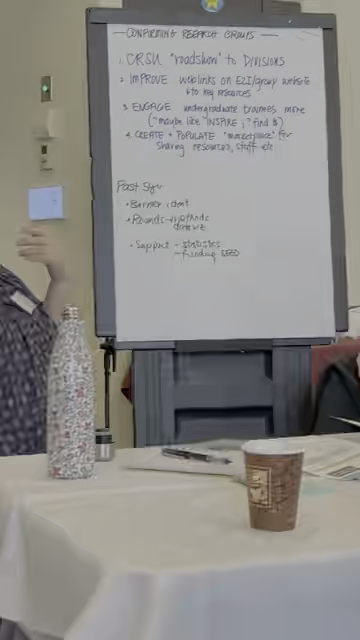 CONFIRMING RESEARCH GROUPS
1. CRSU "roadshow" to Divisions
2. IMPROVE weblinks on EZI/group website
to key resources
3. ENGAGE undergraduate trainees more
("maybe like "INSPIRE"; find $)
4. CREATE + POPULATE "marketplace" for
sharing resources, staff etc
Past
• Barrier ident
• Rounds - methods
• Support - statistics
- funding SEED